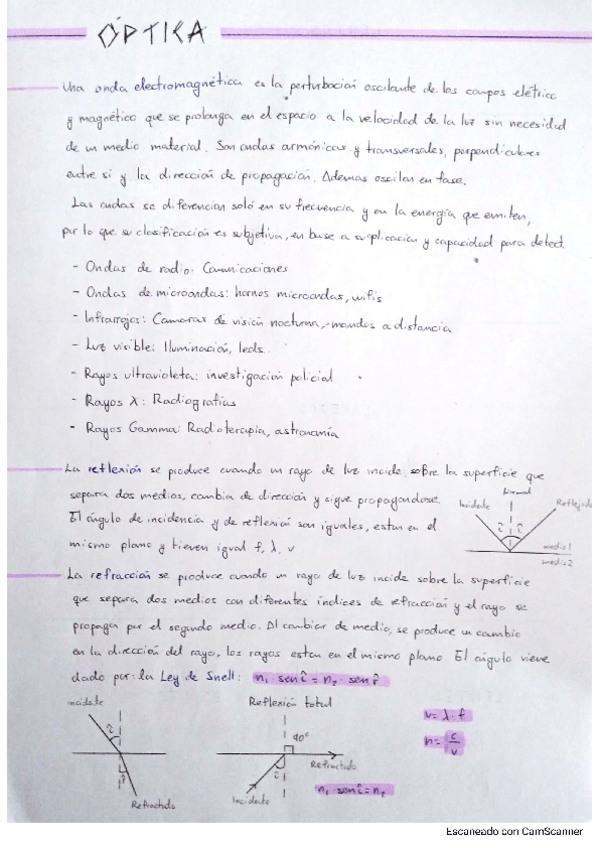 ÓPTICA
Una onda electromagnética es la perturbación oscilante de los campos elétrico
y magnético que se prolonga en el espacio a la velocidad de la luz sin necesidad
de un medio material. Son ondas armónicas y transversales, perpendiculares
entre si y la dirección de propagación. Ademas oscilan en fase.
Las ondas se diferencian soló en su frecuencia y en la energía que emiten,
por lo que su clasificación es subjetiva, en base a su aplicación y capacidad para detect.
- Ondas de radio: Comunicaciones
- Ondas de microondas: hornos microondas, wifis
- Infrarrojos: Camaras de visión nocturna, mandos a distancia
- Luz visible: Iluminación, leds..
- Rayos ultravioleta: investigación policial
- Rayos λ: Radiografías
- Rayos Gamma: Radioterapia, astronomía
La reflexión se produce cuando un rayo de luz incide sobre la superficie que
separa dos medios, cambia de dirección y sigue propagandose.
El ángulo de incidencia y de reflexión son iguales, estan en el
mismo plano y tienen igual f, λ, v
Normal
Incidente
Reflejado
î
î
medio 1
medio 2
La refracción se produce cuando un rayo de luz incide sobre la superficie
que separa dos medios con diferentes índices de refracción y el rayo se
propaga por el segundo medio. Al cambiar de medio, se produce un cambio
en la dirección del rayo, los rayos estan en el mismo plano El ángulo viene
dado por la Ley de Snell: n₁ · sen î = n₂ · sen r̂
incidente
î
r̂
Refractado
Reflexión total
90°
Refractado
î
Incidente
n₁ · sen î = n₂
v = λ · f
n = c/v
Escaneado con CamScanner